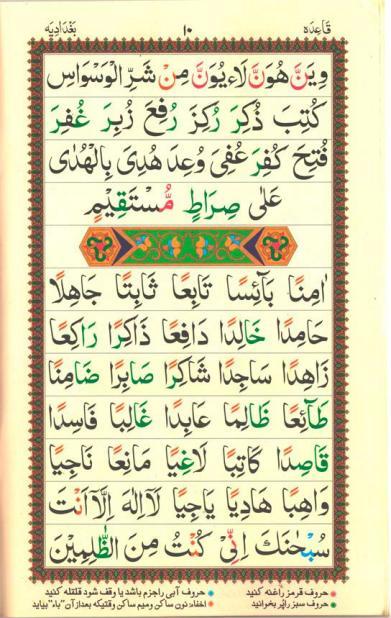 قاعده ۱۰ بغدادیه
وِیَنَّ هُوَنَّ لَاءِیُوَنَّ مِنْ شَرِّ الْوَسْوَاسِ
كُتِبَ ذُكِرَ رُكِزَ رُفِعَ زُبِرَ غُفِرَ
فُتِحَ كُفِرَ عُفِیَ وُعِدَ هُدِیَ بِالْهُدٰی
عَلٰی صِرَاطٍ مُّسْتَقِیْمٍ
اٰمِنًا بَآئِسًا تَابِعًا ثَابِتًا جَاهِلًا
حَامِدًا خَالِدًا دَافِعًا ذَاكِرًا رَاكِعًا
زَاهِدًا سَاجِدًا شَاكِرًا صَابِرًا ضَامِنًا
طَآئِعًا ظَالِمًا عَابِدًا غَالِبًا فَاسِدًا
قَاصِدًا كَاتِبًا لَاغِیًا مَانِعًا نَاجِیًا
وَاهِبًا هَادِیًا یَاجِیًا لَآ اِلٰهَ اِلَّآ اَنْتَ
سُبْحٰنَكَ اِنِّیْ كُنْتُ مِنَ الظّٰلِمِیْنَ
حروف قرمز را غنه کنید
حروف آبی را جزم باشد یا وقف شود قلقله کنید
حروف سبز را پر بخوانید
اخفاء نون ساکن ومیم ساکن وقتیکه بعد از آن "باء" بیاید